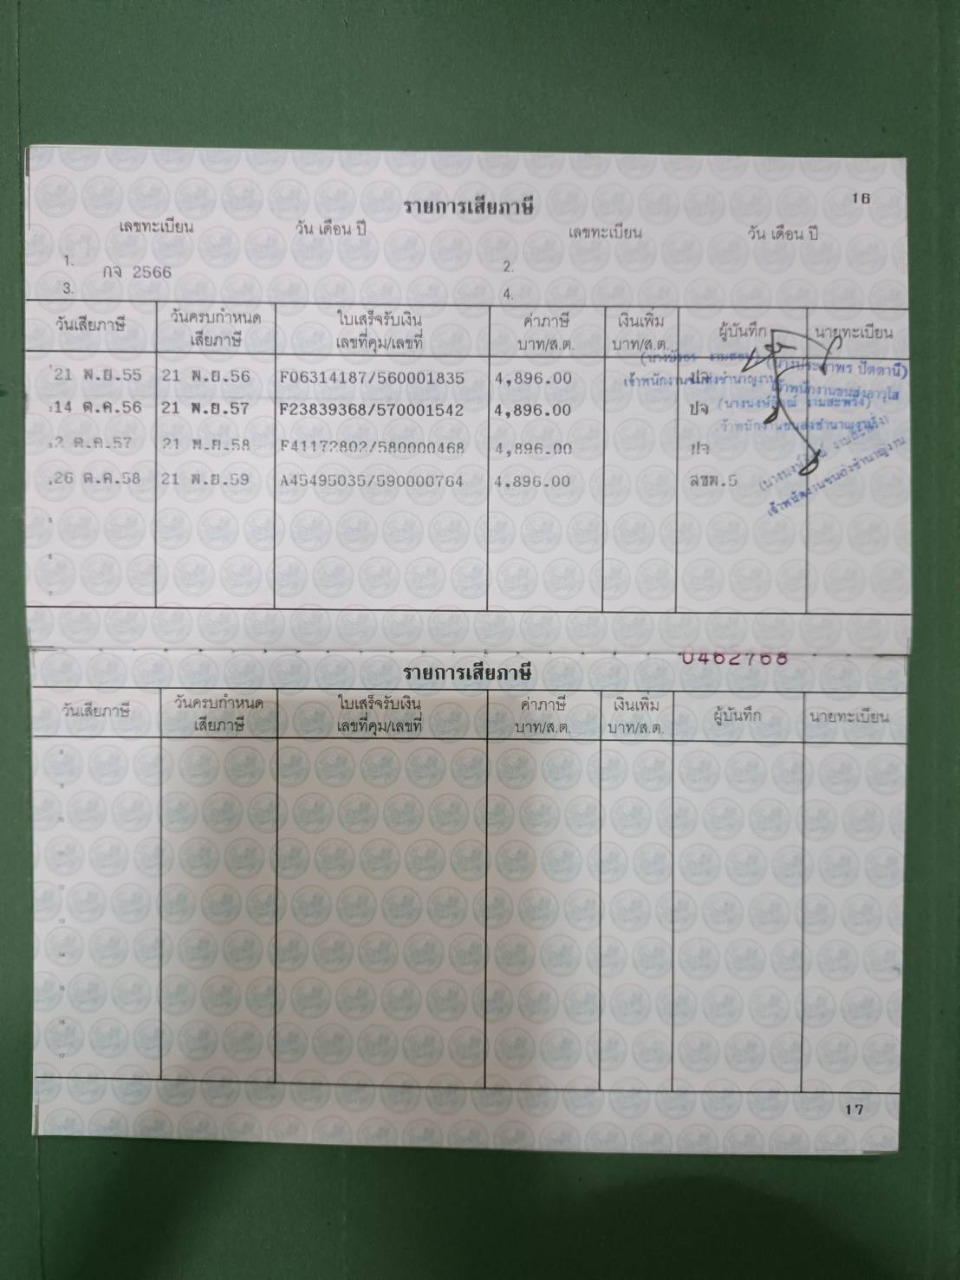 16
รายการเสียภาษี
เลขทะเบียน วัน เดือน ปี เลขทะเบียน วัน เดือน ปี
1. กจ 2566 2.
3. 4.
วันเสียภาษี วันครบกำหนดเสียภาษี ใบเสร็จรับเงิน เลขที่คุม/เลขที่ ค่าภาษี บาท/ส.ต. เงินเพิ่ม บาท/ส.ต. ผู้บันทึก นายทะเบียน
21 พ.ย.55 21 พ.ย.56 F06314187/560001835 4,896.00 ปจ
14 ต.ค.56 21 พ.ย.57 F23839368/570001542 4,896.00 ปจ
2 ต.ค.57 21 พ.ย.58 F41172802/580000468 4,896.00 ปจ
26 ต.ค.58 21 พ.ย.59 A45495035/590000764 4,896.00 สขพ.5
เจ้าพนักงานขนส่งชำนาญงาน
0462768
รายการเสียภาษี
วันเสียภาษี วันครบกำหนดเสียภาษี ใบเสร็จรับเงิน เลขที่คุม/เลขที่ ค่าภาษี บาท/ส.ต. เงินเพิ่ม บาท/ส.ต. ผู้บันทึก นายทะเบียน
17